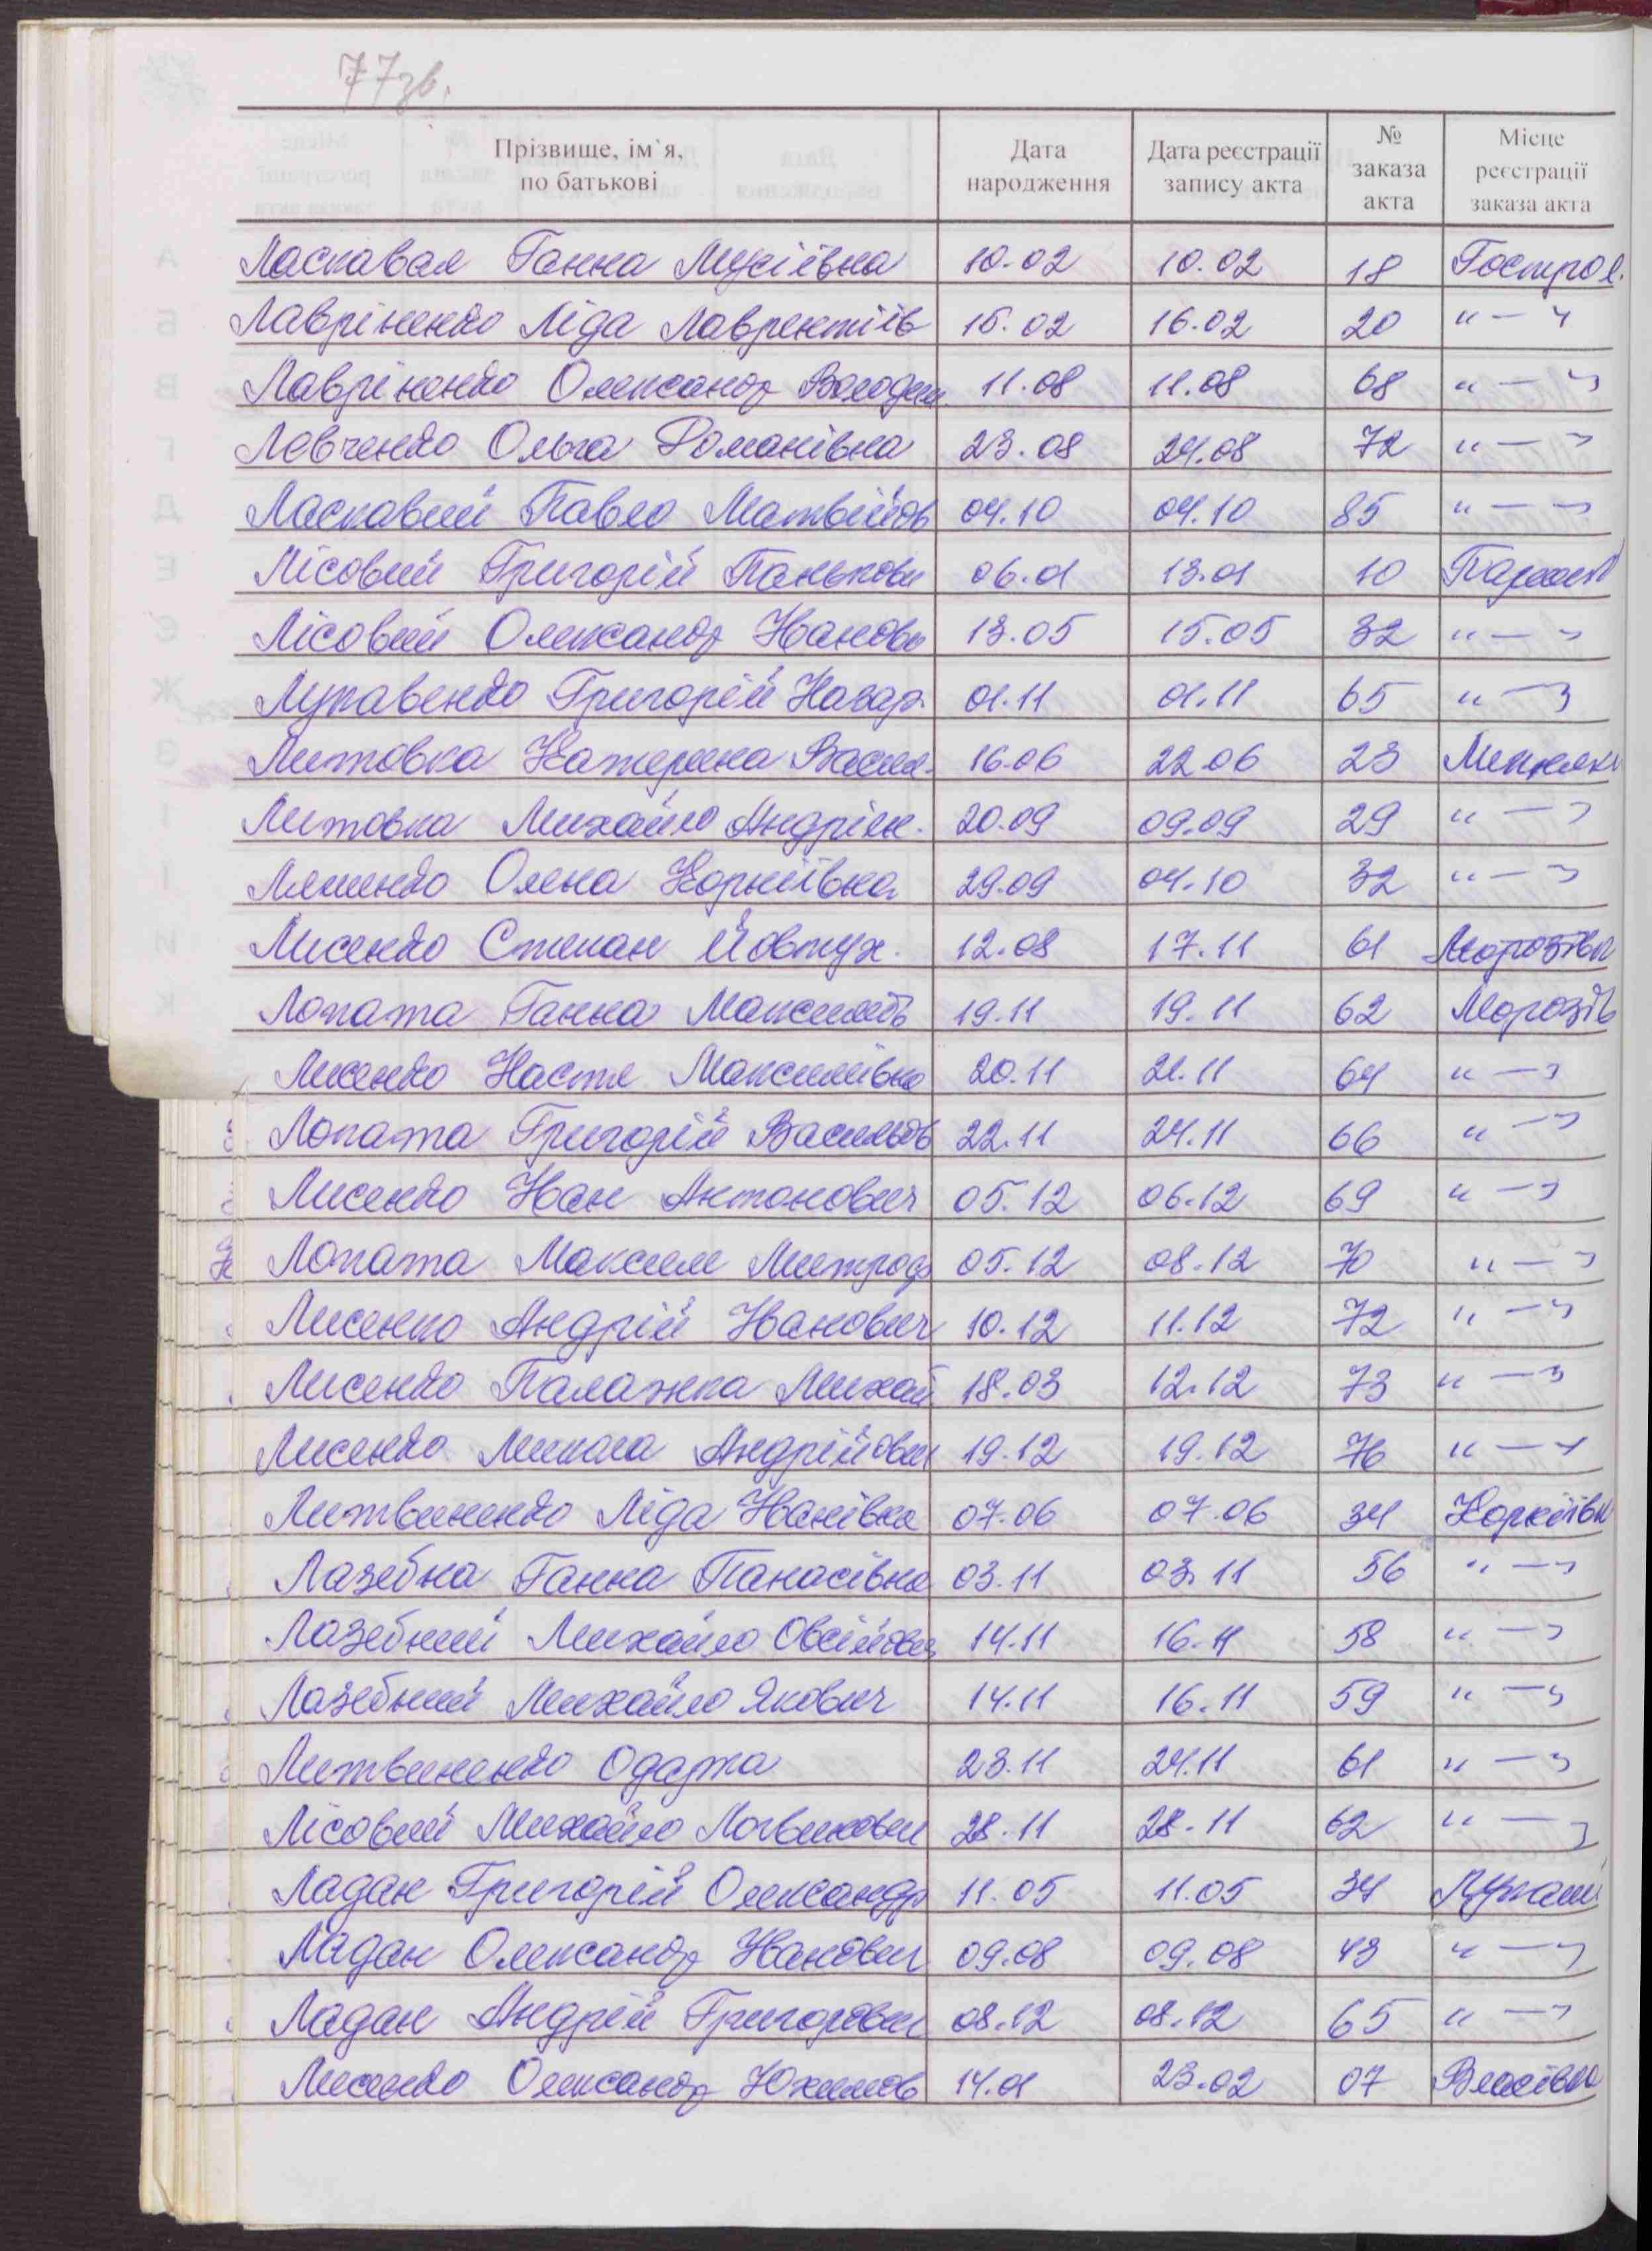 77зв.
Прізвище, ім`я, по батькові | Дата народження | Дата реєстрації запису акта | № заказа акта | Місце реєстрації заказа акта
Ласкавая Ганна Мусіївна 10.02 10.02 18 Гострол.
Лавріненко Ліда Лаврентіїв 15.02 16.02 20 " — "
Лавріненко Олександр Володим. 11.08 11.08 68 " — "
Левченко Ольга Романівна 23.08 24.08 72 " — "
Ласкавий Павло Матвійов 04.10 04.10 85 " — "
Лісовий Григорій Панькови 06.01 13.01 10
Лісовий Олександр Іванови 13.05 15.05 32 " — "
Лукавенко Григорій Назар. 01.11 01.11 65 " — "
Литовка Катерина Васил. 16.06 22.06 23
Литовка Михайло Андріян. 20.09 09.09 29 " — "
Ляшенко Олена Корніївна 29.09 04.10 32 " — "
Лисенко Степан Йовтух. 12.08 17.11 61 Морозівк
Лопата Ганна Максимів 19.11 19.11 62 Морозів
Лисенко Настя Максимівна 20.11 21.11 64 " — "
Лопата Григорій Васильов 22.11 24.11 66 " — "
Лисенко Іван Антонович 05.12 06.12 69 " — "
Лопата Максим Митроф 05.12 08.12 70 " — "
Лисенко Андрій Іванович 10.12 11.12 72 " — "
Лисенко Палажка Михай 18.03 12.12 73 " — "
Лисенко Микола Андрійови 19.12 19.12 76 " — "
Литвиненко Ліда Іванівна 07.06 07.06 34 Корніївк
Лазебна Ганна Панасівна 03.11 03.11 56 " — "
Лазебний Михайло Овсійович 14.11 16.11 58 " — "
Лазебний Михайло Якович 14.11 16.11 59 " — "
Литвиненко Одарка 23.11 24.11 61 " — "
Лісовий Михайло Логвинови 28.11 28.11 62 " — "
Ладан Григорій Олександр 11.05 11.05 34 Лукаші
Ладан Олександр Іванович 09.08 09.08 43 " — "
Ладан Андрій Григорови 08.12 08.12 65 " — "
Лисенко Олександр Юхимов 14.01 23.02 07 Власівка